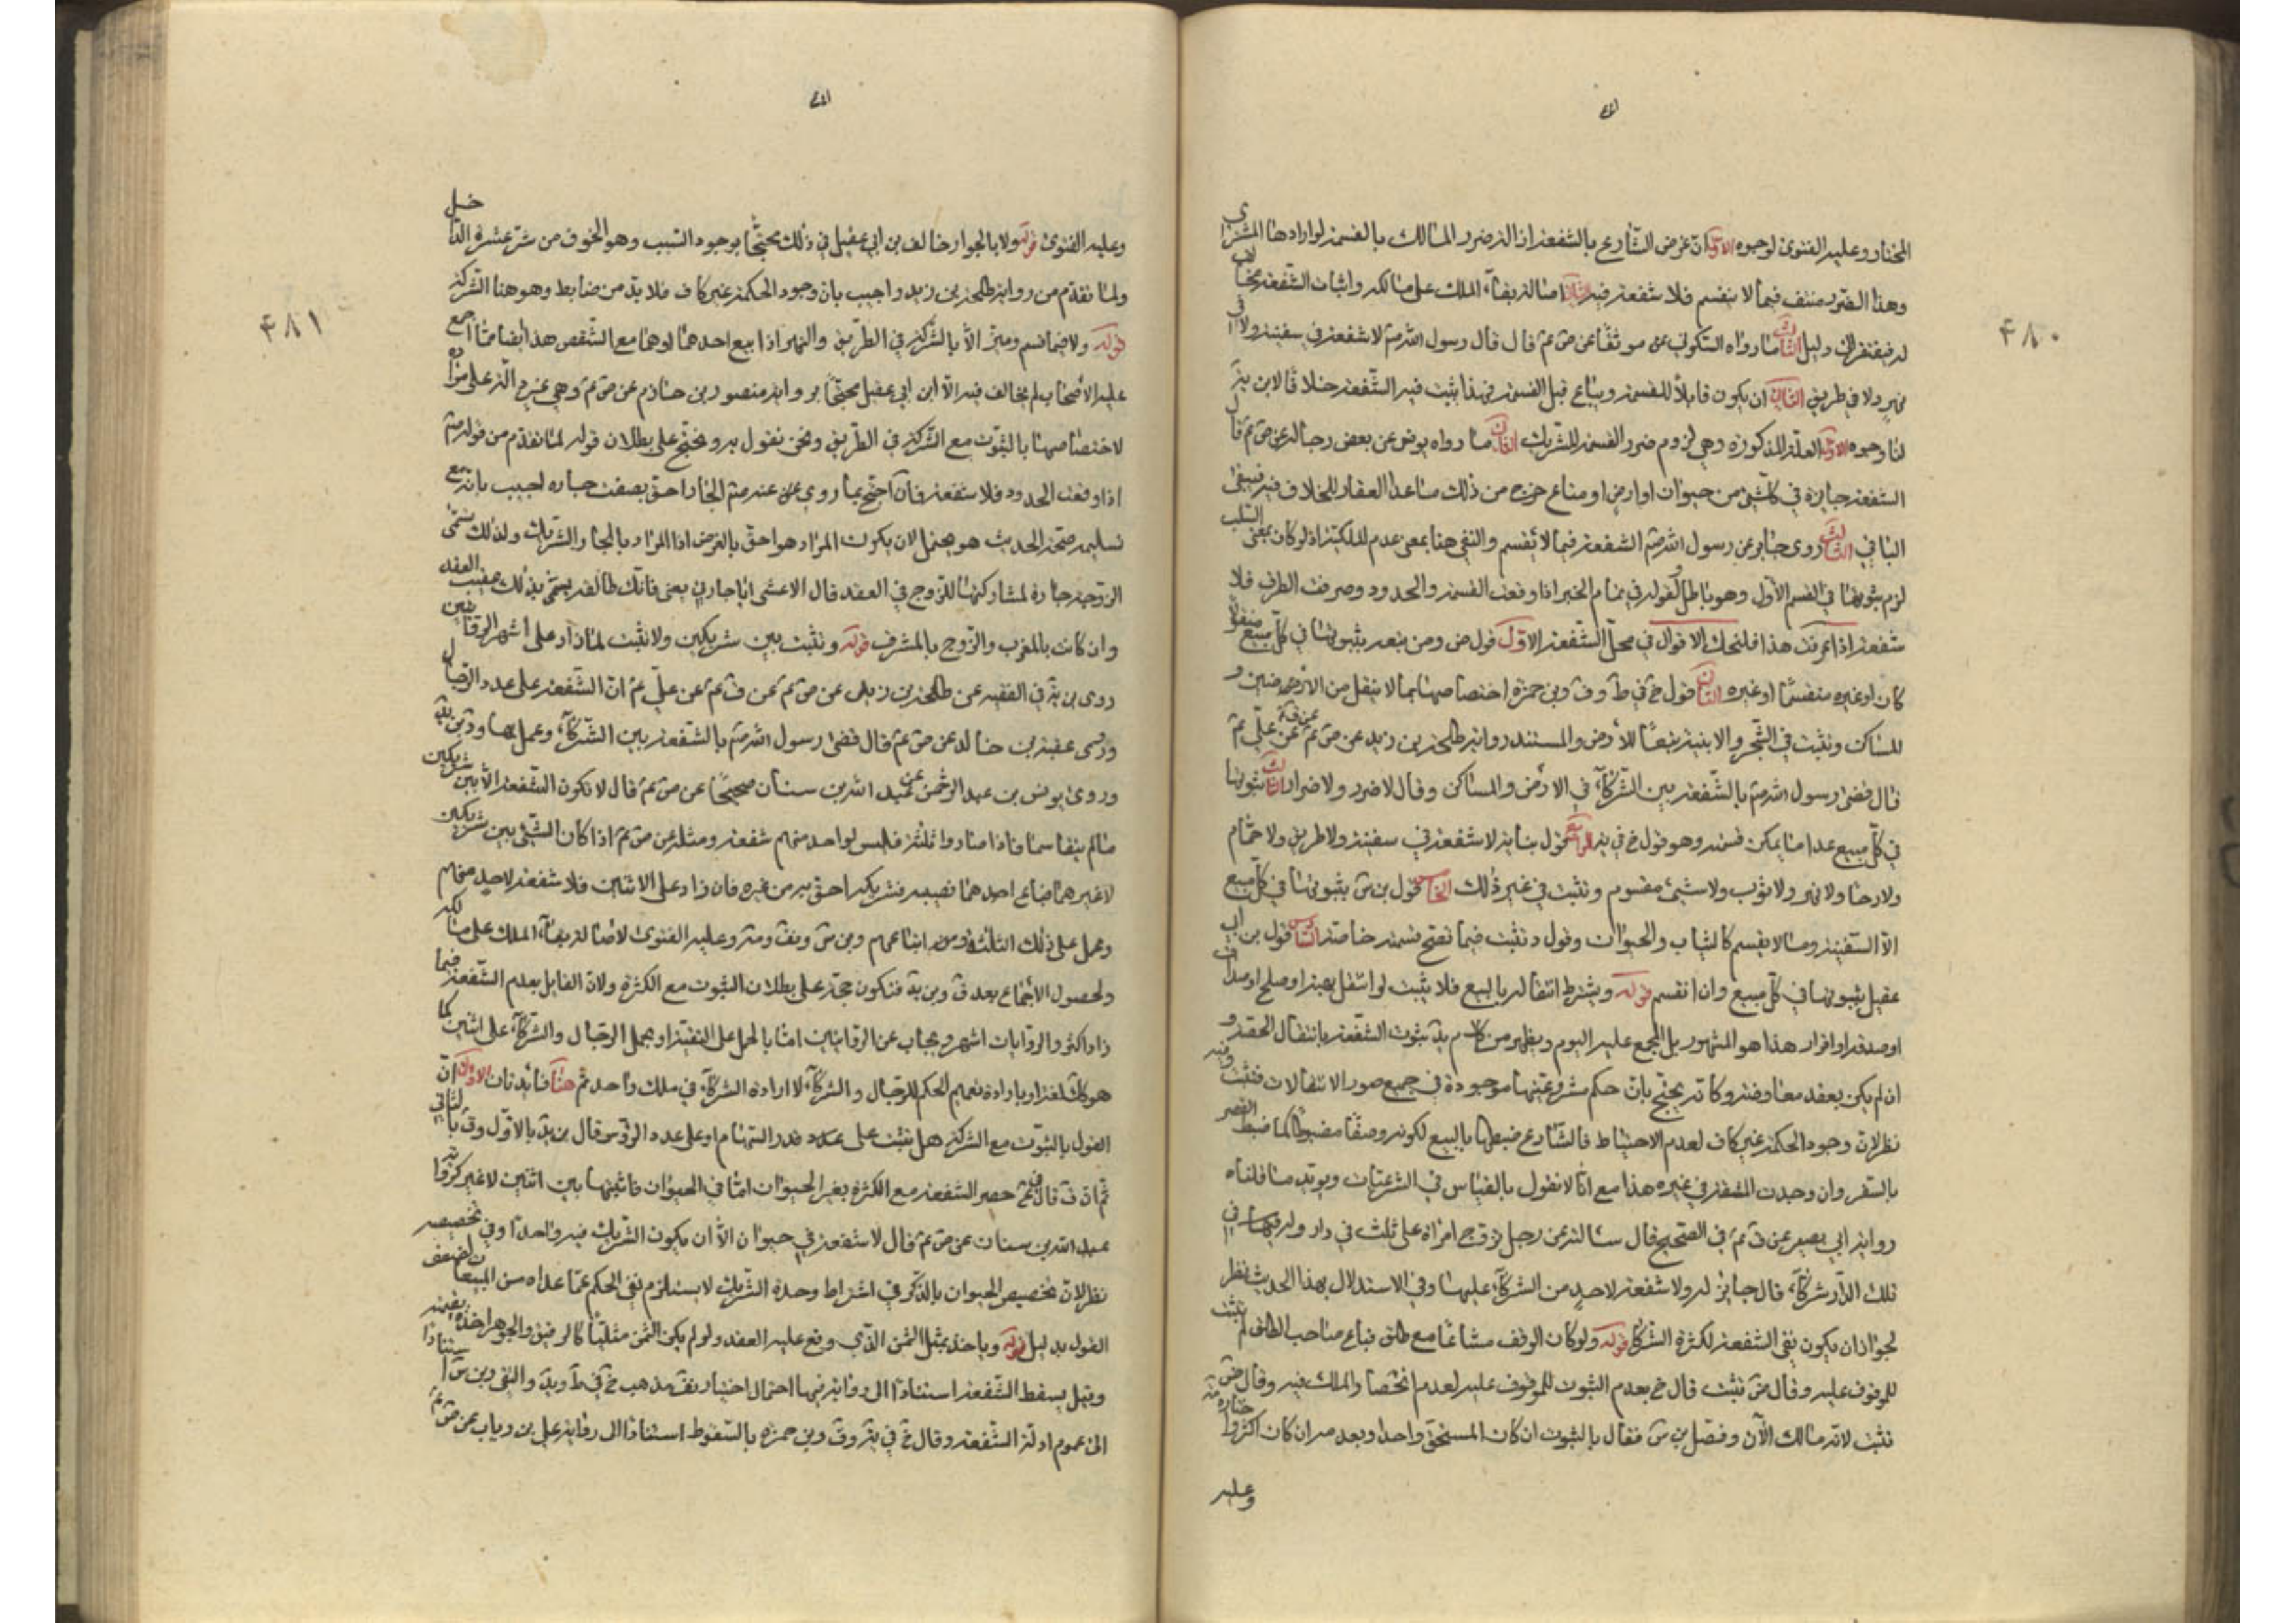 ۴۸۰
المختار وعليه الفتوى لوجوه الاول ان غرض الشارع بالشفعة ازالة ضرر المالك بالقسمة لو ارادها المشتري
وهذا الضرر منتف فيما لا ينقسم فلا شفعة فيه الثاني اصالة بقاء الملك على مالكه واثبات الشفعة يخالف
له فيفتقر الى دليل الثالث ما رواه السكوني موثقا عن ص ع قال قال رسول الله ص لا شفعة في سفينة ولا في
نهر ولا في طريق الثاني ان يكون قابلا للقسمة ويباع قبل القسمة فهذا يثبت فيه الشفعة خلافا لابن
لنا وجوه الاول العلة المذكورة وهي لزوم ضرر القسمة للشريك الثاني ما رواه يونس عن بعض رجاله عن ص ع قال
الشفعة جايزة في كل شيء من حيوان او ارض او متاع خرج من ذلك ما عدا العقار للخلاف فيه فيبقى
الباقي الثالث روى جابر عن رسول الله ص الشفعة فيما لا يقسم والنفي هنا بمعنى عدم الملكية اذ لو كان بمعنى السلب
لزم ثبوتها في القسم الاول وهو باطل لقوله في تمام الخبر اذا وقعت القسمة والحدود وصرفت الطرف فلا
شفعة اذا عرفت هذا فلنحك الاقوال في محل الشفعة الاول قول ض ومن تبعه بثبوتها في كل مبيع منقولا
كان او غيره منقسما او غيره الثاني قول خ في ط وف وبن حمزة اختصاصها بما لا ينقل من الارضين و
المساكن وتثبت في الشجر والابنية تبعا للارض والمستند رواية طلحة بن زيد عن ص ع عن علي ع
قال قضى رسول الله ص بالشفعة بين الشركاء في الارض والمساكن وقال لا ضرر ولا ضرار الثالث ثبوتها
في كل مبيع عدا ما يمكن قسمته وهو قول خ في يه الرابع قول بنابويه لا شفعة في سفينة ولا طريق ولا حمام
ولا رحا ولا نهر ولا ثوب ولا شيء مقسوم وتثبت في غير ذلك الخامس قول بن س بثبوتها في كل مبيع
الا السفينة وما لا يقسم كالثياب والحيوان وقول د تثبت فيما تصح قسمته خاصة السادس قول بن ابي
عقيل بثبوتها في كل مبيع وان انقسم قوله ويشترط انتقاله بالبيع فلا يثبت لو انتقل بهبة او صلح او صداق
او صدقة او اقرار هذا هو المشهور بل المجمع عليه اليوم ويظهر من كلام ثبوت الشفعة بانتقال الحقة و
ان لم يكن بعقد معاوضة وكانه يحتج بان حكم مشروعيتها موجودة في جميع صور الانتقالات فتثبت وفيه
نظر لان وجود الحكمة غير كاف لعدم الاحتياط فالشارع ضبطها بالبيع لكونه وصفا مضبوطا كما ضبط القصر
بالسفر وان وجدت المشقة في غيره هذا مع انا لا نقول بالقياس في الشرعيات ويؤيد ما قلناه
رواية ابي بصير عن ق ع في الصحيح قال سالته عن رجل تزوج امراة على ثلث في دار وله فيها في
تلك الدار شركاء قال جايز له ولا شفعة لاحد من الشركاء عليها وفي الاستدلال بهذا الحديث نظر
لجواز ان يكون نفي الشفعة لكثرة الشركا قوله ولو كان الوقف مشاعا مع طلق فباع صاحب الطلق لم تثبت
للموقوف عليه وقال ض تثبت قال خ بعدم الثبوت للموقوف عليه لعدم اختصاص الملك فيه وقال ض
تثبت لانه مالك الآن وفصل بن س فقال بالثبوت ان كان المستحق واحدا وبعدمه ان كان اكثر واختاره
وعليه
۴۸۱
وعليه الفتوى قوله ولا بالجوار خالف بن ابي عقيل في ذلك محتجا بوجود السبب وهو الخوف من شر عشرة الداخل
ولما تقدم من رواية طلحة بن زيد واجيب بان وجود الحكمة غير كاف فلا بد من ضابط وهو هنا الشركة
قوله ولا فيما قسم وميز الا بالشركة في الطريق والنهر اذا بيع احدهما او هما مع الشقص هذا ايضا مما اجمع
عليه الاصحاب لم يخالف فيه الا ابن ابي عقيل محتجا برواية منصور بن حازم عن ص ع وهي غير دالة على مراده
لاختصاصها بالثبوت مع الشركة في الطريق ونحن نقول به ونحتج على بطلان قوله لما تقدم من قوله ص
اذا وقعت الحدود فلا شفعة فان احتج بما روي عنه ص الجار احق بصفت جاره اجيب بانه مع
تسليم صحة الحديث هو محتمل لان يكون المراد هو احق بالعرض اذ المراد بالجار الشريك ولذلك تسمى
الزوجة جارة لمشاركتها للزوج في العقد قال الاعشى ايا جارتي بيني فانك طالقة يسمى بذلك عقيب العقد
وان كانت بالمغرب والزوج بالمشرق قوله وتثبت بين شريكين ولا تثبت لما زاد على اشهر الروايتين
روى بن يه في الفقيه عن طلحة بن زيد عن ص ع عن ق ع عن علي ع ان الشفعة على عدد الرجال
وروى عقبة بن خالد عن ص ع قال قضى رسول الله ص بالشفعة بين الشركاء وعمل بها
وروى يونس بن عبد الرحمن عن عبد الله بن سنان صحيحا عن ص ع قال لا تكون الشفعة الا بين شريكين
ما لم يتقاسما فاذا صاروا ثلثة فليس لواحد منهم شفعة ومثله عن ص ع اذا كان الشيء بين شريكين
لا غيرهما فباع احدهما نصيبه فشريكه احق به من غيره فان زاد على الاثنين فلا شفعة لاحد منهم
وعمل على ذلك الثلثة ومن اتباعهم وبن س وعليه الفتوى لاصالة بقاء الملك على مالكه
ولحصول الاجماع بعد ق وبن يه فتكون حجة على بطلان الثبوت مع الكثرة ولان القايل بعدم الشفعة فيما
زاد اكثر والروايات اشهر ويجاب عن الروايتين اما بالحمل على التقية او يحمل الرجال والشركاء على اثنين كما
هو كك لغة او بارادة تعميم الحكم للرجال والشركاء لا ارادة الشركاء في ملك واحد ثم هنا فائدتان الاولى ان
القول بالثبوت مع الشركة هل تثبت على عدد قدر السهام او على عدد الرؤس قال بن يه بالاول وق بالثاني
ثم ان ق قال حصر الشفعة مع الكثرة بغير الحيوان اما في الحيوان فاثبتها بين اثنين لا غير كرواية
عبد الله بن سنان عن ص ع قال لا شفعة في حيوان الا ان يكون الشريك فيه واحدا وفي تخصيصه
نظر لان تخصيص الحيوان بالذكر في اشتراط وحدة الشريك لا يستلزم نفي الحكم عما عداه من المبيعات لضعف
القول بدليل قوله وياخذ بمثل الثمن الذي وقع عليه العقد ولو لم يكن الثمن مثليا كالرقيق والجوهر اخذه بقيمته
وقيل يسقط الشفعة استنادا الى رواية فيها احتمال اختيار مذهب خ في ط والتقي وبن س استنادا
الى عموم ادلة الشفعة وقال خ في وبن حمزة بالسقوط استنادا الى رواية علي بن رياب عن ص ع